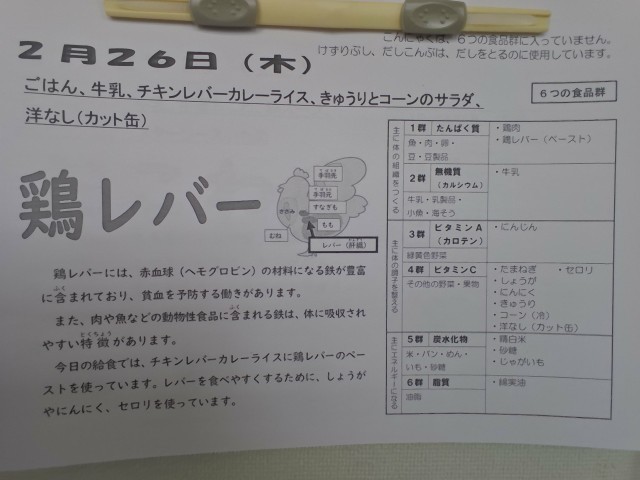 こんにゃくは、6つの食品群に入っていません。
けずりぶし、だしこんぶは、だしをとるのに使用しています。
2月26日（木）
ごはん、牛乳、チキンレバーカレーライス、きゅうりとコーンのサラダ、
洋なし(カット缶)
6つの食品群
鶏レバー
手羽先
手羽元
すなぎも
ささみ
もも
むね
レバー（肝臓）
鶏レバーには、赤血球（ヘモグロビン）の材料になる鉄が豊富
に含まれており、貧血を予防する働きがあります。
また、肉や魚などの動物性食品に含まれる鉄は、体に吸収され
やすい特徴があります。
今日の給食では、チキンレバーカレーライスに鶏レバーのペー
ストを使っています。レバーを食べやすくするために、しょうが
やにんにく、セロリを使っています。
主に体の組織をつくる
1群 たんぱく質
魚・肉・卵・
豆・豆製品
・鶏肉
・鶏レバー（ペースト）
2群 無機質
（カルシウム）
牛乳・乳製品・
小魚・海そう
・牛乳
主に体の調子を整える
3群 ビタミンA
（カロテン）
緑黄色野菜
・にんじん
4群 ビタミンC
その他の野菜・果物
・たまねぎ ・セロリ
・しょうが
・にんにく
・きゅうり
・コーン（冷）
・洋なし（カット缶）
主にエネルギーになる
5群 炭水化物
米・パン・めん・
いも・砂糖
・精白米
・砂糖
・じゃがいも
6群 脂質
油脂
・綿実油